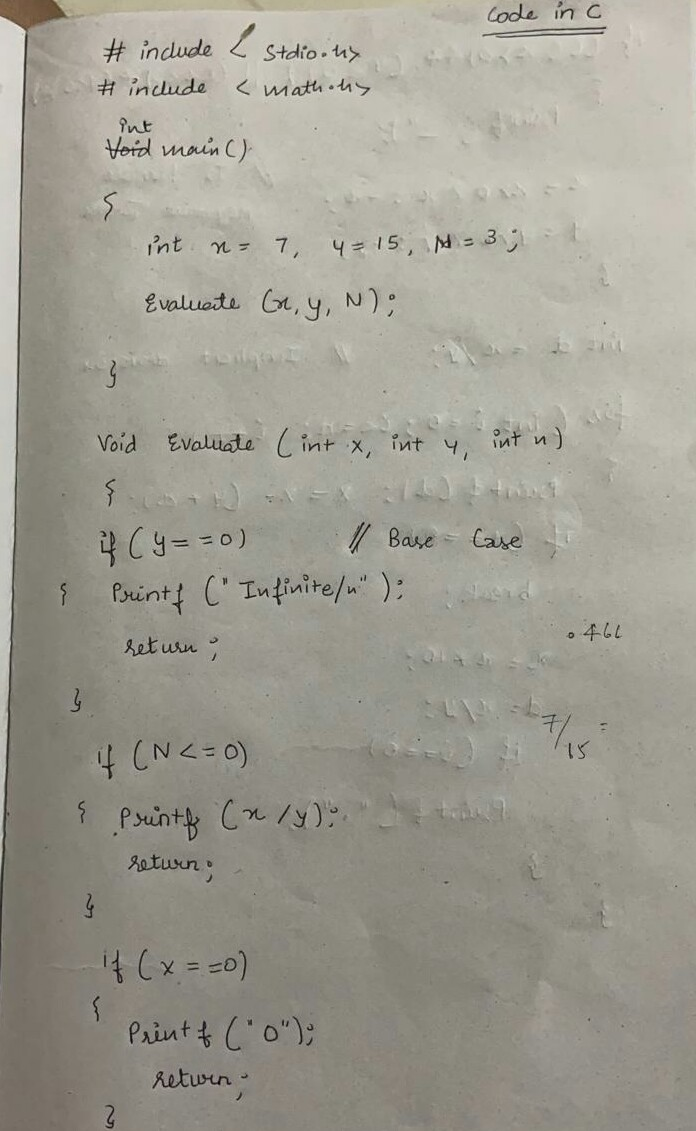 Code in C
# include < stdio.h>
# include < math.h>
int
Void main()
{
int x = 7, y = 15, N = 3;
Evaluate (x, y, N);
}
Void Evaluate (int x, int y, int n)
{
if (y==0) // Base Case
{ Printf ("Infinite/n");
return;
.466
}
7/15 =
if (N<=0)
{ Printf (x/y);
return;
}
if (x==0)
{
Printf ("0");
return;
}